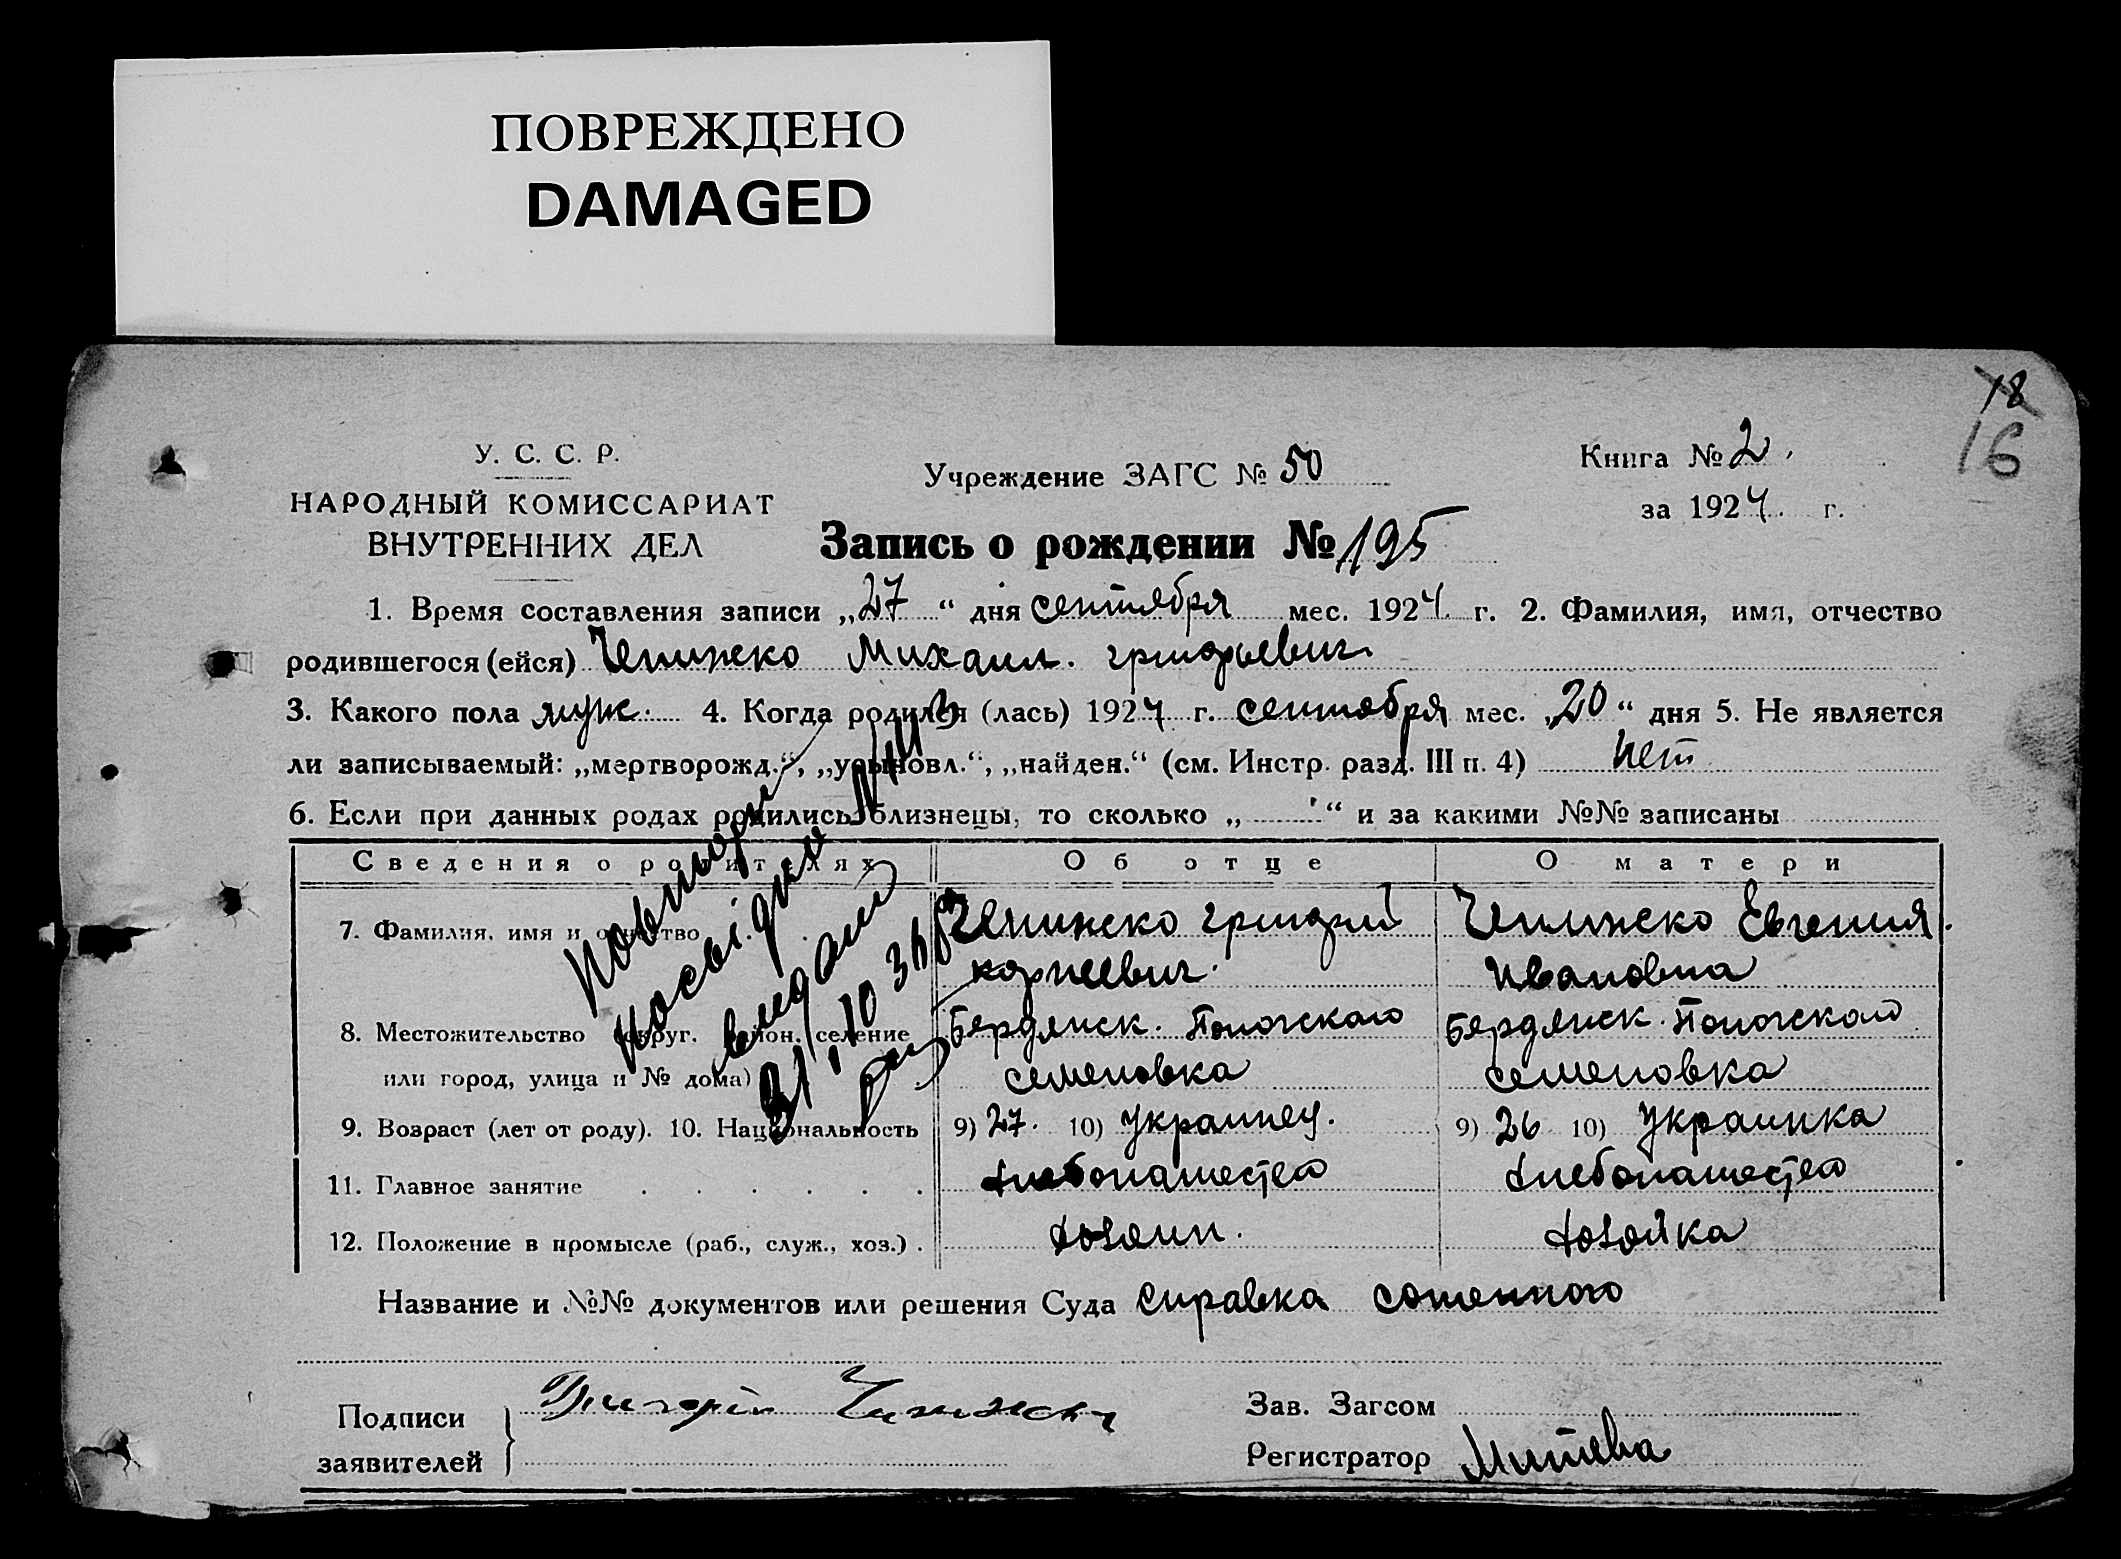 ПОВРЕЖДЕНО
DAMAGED
18
16
У. С. С. Р.
НАРОДНЫЙ КОМИССАРИАТ
ВНУТРЕННИХ ДЕЛ
Учреждение ЗАГС № 50
Книга № 2
за 1924 г.
Запись о рождении № 195
1. Время составления записи „27“ дня сентября мес. 1924 г. 2. Фамилия, имя, отчество
родившегося (ейся) Чепижко Михаил григорьевич
3. Какого пола муж. 4. Когда родился (лась) 1924 г. сентября мес. „20“ дня 5. Не является
ли записываемый: „мертворожд.“, „усыновл.“, „найден.“ (см. Инстр. разд. III п. 4) нет
6. Если при данных родах родились близнецы, то сколько „ “ и за какими №№ записаны
Сведения о родителях Об отце О матери
7. Фамилия, имя и отчество Чепижко григорий Чепижко Евгения
корнеевич. Ивановна
8. Местожительство (округ. район, селение Бердянск. Пологского Бердянск. Пологского
или город, улица и № дома) семеновка семеновка
9. Возраст (лет от роду). 10. Национальность 9) 27. 10) Украинец. 9) 26 10) Украинка
11. Главное занятие хлебопашество хлебопашество
12. Положение в промысле (раб., служ., хоз.) хозяин. хозяйка
Повторн
посвідчю
видано
31/10 36
Название и №№ документов или решения Суда Справка
Подписи
заявителей
Зав. Загсом
Регистратор